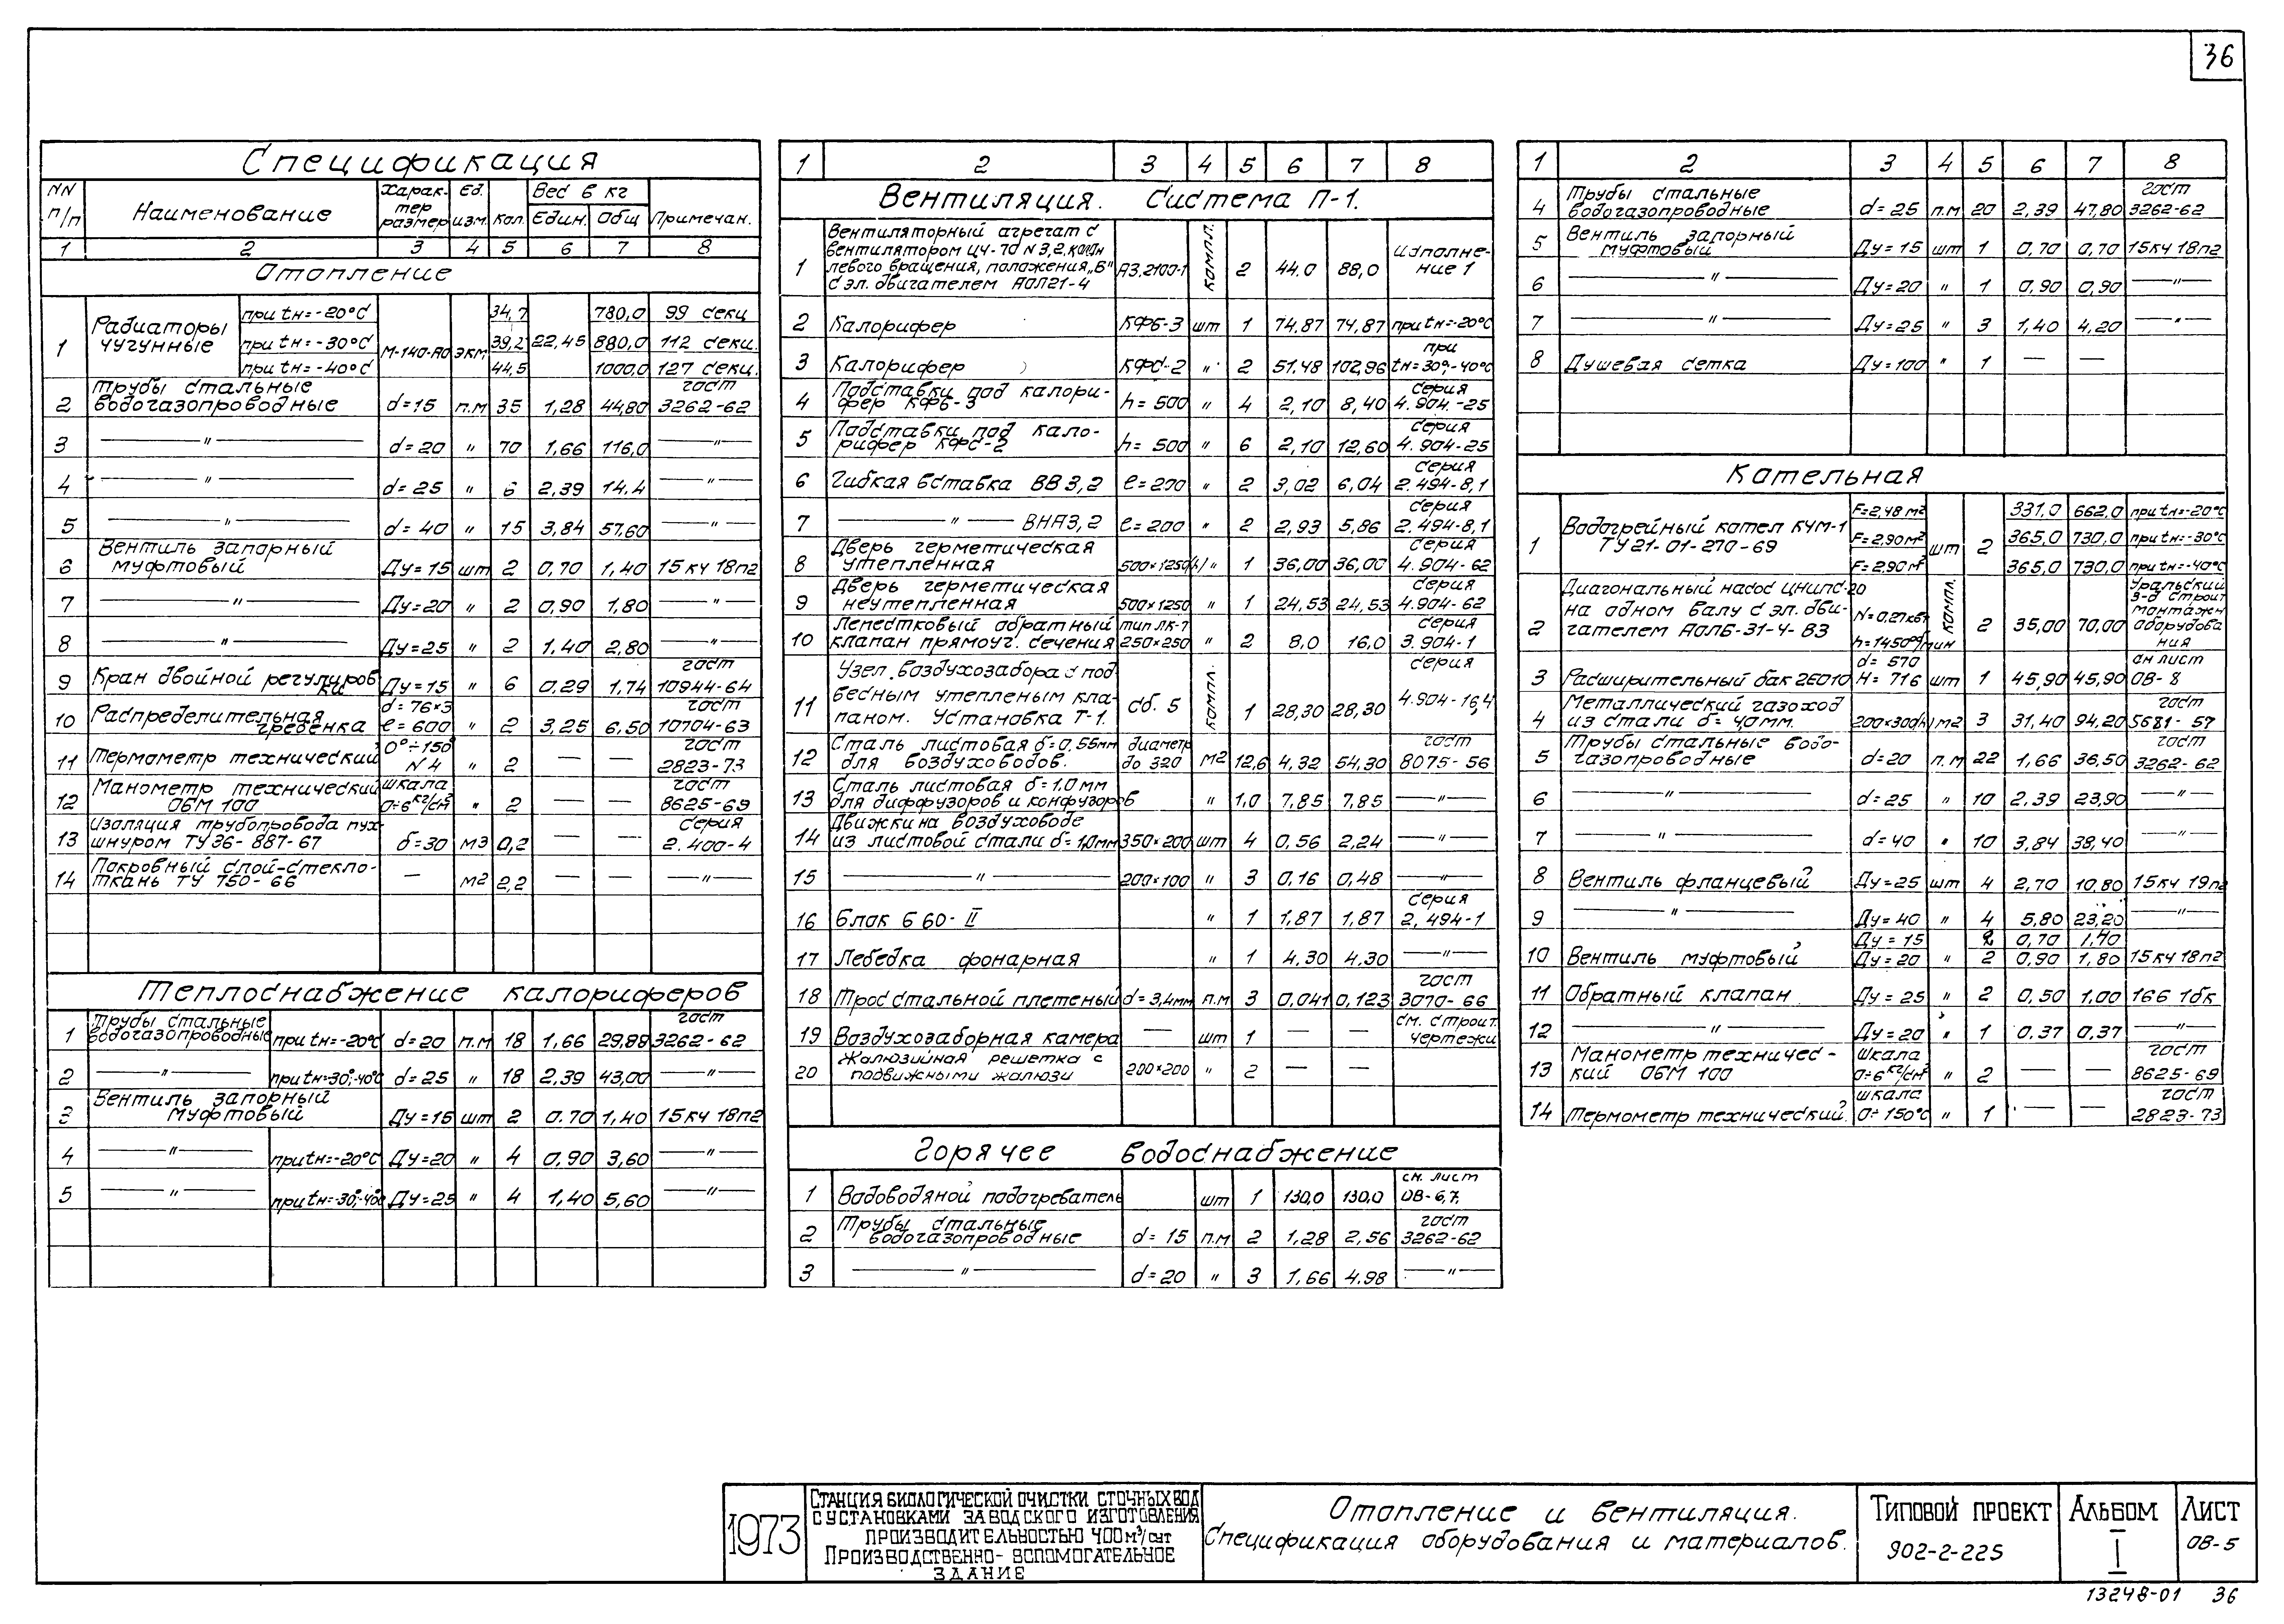 36
Спецификация
NN п/п Наименование Характер размер Ед. изм. Кол. Вес в кг Един. Общ Примечан.
1 2 3 4 5 6 7 8
Отопление
1 Радиаторы чугунные при tн=-20°С М-140-АО экм 34,7 22,45 780,0 99 секц
при tн=-30°С 39,2 880,0 112 секц.
при tн=-40°С 44,5 1000,0 127 секц.
2 Трубы стальные водогазопроводные d=15 п.м 35 1,28 44,80 гост 3262-62
3 —"— d=20 " 70 1,66 116,0 —"—
4 —"— d=25 " 6 2,39 14,4 —"—
5 —"— d=40 " 15 3,84 57,60 —"—
6 Вентиль запорный муфтовый Ду=15 шт 2 0,70 1,40 15кч 18п2
7 —"— Ду=20 " 2 0,90 1,80 —"—
8 —"— Ду=25 " 2 1,40 2,80 —"—
9 Кран двойной регулировки Ду=15 " 6 0,29 1,74 гост 10944-64
10 Распределительная гребенка d=76×3 ℓ=600 " 2 3,25 6,50 гост 10704-63
11 Термометр технический 0°÷150° N4 " 2 — — гост 2823-73
12 Манометр технический ОБМ 100 шкала 0÷6 кг/см² " 2 — — гост 8625-69
13 Изоляция трубопровода пухшнуром ТУ36-887-67 δ=30 м3 0,2 — — серия 2.400-4
14 Покровный слой-стеклоткань ТУ 750-66 — м2 2,2 — — —"—
Теплоснабжение калориферов
1 Трубы стальные водогазопроводные при tн=-20°С d=20 п.м 18 1,66 29,88 гост 3262-62
2 —"— при tн=-30°;-40°С d=25 " 18 2,39 43,00 —"—
3 Вентиль запорный муфтовый Ду=15 шт 2 0.70 1,40 15кч 18п2
4 —"— при tн=-20°С Ду=20 " 4 0,90 3,60 —"—
5 —"— при tн=-30°;-40°С Ду=25 " 4 1,40 5,60 —"—
1 2 3 4 5 6 7 8
Вентиляция. Система П-1.
1 Вентиляторный агрегат с вентилятором Ц4-70 N3,2, левого вращения, положения „Б" с эл. двигателем АОЛ21-4 А3,2100-1 компл. 2 44.0 88,0 исполнение 1
2 Калорифер КФБ-3 шт 1 74,87 74,87 при tн=-20°С
3 Калорифер КФС-2 " 2 51.48 102,96 при tн=-30°;-40°С
4 Подставки под калорифер КФБ-3 h=500 " 4 2,10 8,40 серия 4.904.-25
5 Подставки под калорифер КФС-2 h=500 " 6 2,10 12,60 серия 4.904-25
6 Гибкая вставка ВВ 3,2 ℓ=200 " 2 3,02 6,04 серия 2.494-8,1
7 —"— ВНА3,2 ℓ=200 " 2 2,93 5,86 серия 2.494-8,1
8 Дверь герметическая утепленная 500×1250(h) " 1 36,00 36,00 серия 4.904-62
9 Дверь герметическая неутепленная 500×1250 " 1 24,53 24,53 серия 4.904-62
10 Лепестковый обратный клапан прямоуг. сечения тип ЛК-7 250×250 " 2 8,0 16,0 серия 3.904-1
11 Узел воздухозабора с подвесным утепленым клапаном. Установка Т-1. сб. 5 компл. 1 28,30 28,30 серия 4.904-16,4
12 Сталь листовая δ=0,55мм для воздуховодов. диаметр до 320 м2 12,6 4,32 54,30 гост 8075-56
13 Сталь листовая δ=1.0мм для диффузоров и конфузоров " 1,0 7,85 7,85 —"—
14 Движки на воздуховоде из листовой стали δ=1,0мм 350×200 шт 4 0,56 2,24 —"—
15 —"— 200×100 " 3 0,16 0,48 —"—
16 Блок Б60-II " 1 1,87 1,87 серия 2.494-1
17 Лебедка фонарная " 1 4.30 4.30 —"—
18 Трос стальной плетеный d=3,4мм п.м 3 0,041 0,123 гост 3070-66
19 Воздухозаборная камера — шт 1 — — см. строит. чертежи
20 Жалюзийная решетка с подвижными жалюзи 200×200 " 2 — —
Горячее водоснабжение
1 Водоводяной подогреватель шт 1 130,0 130,0 см. лист ОВ-6,7.
2 Трубы стальные водогазопроводные d=15 п.м 2 1,28 2,56 гост 3262-62
3 —"— d=20 " 3 1,66 4.98 —"—
1 2 3 4 5 6 7 8
4 Трубы стальные водогазопроводные d=25 п.м 20 2,39 47,80 гост 3262-62
5 Вентиль запорный муфтовый Ду=15 шт 1 0,70 0,70 15кч 18п2
6 —"— Ду=20 " 1 0,90 0,90 —"—
7 —"— Ду=25 " 3 1,40 4,20 —"—
8 Душевая сетка Ду=100 " 1 — —
Котельная
1 Водогрейный котел КЧМ-1 ТУ21-01-270-69 F=2,48м² шт 2 331,0 662,0 при tн=-20°С
F=2,90м² 365,0 730,0 при tн=-30°С
F=2,90м² 365,0 730,0 при tн=-40°С
2 Диагональный насос ЦНИПС-20 на одном валу с эл. двигателем АОЛБ-31-4-В3 N=0.27квт n=1450об/мин компл. 2 35,00 70,00 Уральский з-д строит монтажн оборудования
3 Расширительный бак 2Е010 d=570 H=716 шт 1 45,90 45,90 см лист ОВ-8
4 Металлический газоход из стали δ=40мм. 200×300(h) м2 3 31,40 94,20 гост 5681-57
5 Трубы стальные водогазопроводные d=20 п.м 22 1,66 36,50 гост 3262-62
6 —"— d=25 " 10 2.39 23,90 —"—
7 —"— d=40 " 10 3,84 38,40 —"—
8 Вентиль фланцевый Ду=25 шт 4 2,70 10,80 15кч 19п2
9 —"— Ду=40 " 4 5,80 23,20 —"—
10 Вентиль муфтовый Ду=15 2 0,70 1,40
Ду=20 " 2 0,90 1,80 15кч 18п2
11 Обратный клапан Ду=25 " 2 0,50 1,00 16б 1бк
12 —"— Ду=20 " 1 0,37 0,37 —"—
13 Манометр технический ОБМ 100 шкала 0÷6 кг/см² " 2 — — гост 8625-69
14 Термометр технический. шкала 0÷150°С " 1 — — гост 2823-73
1973
Станция биологической очистки сточных вод
с установками заводского изготовления
производительностью 400 м³/сут
Производственно-вспомогательное
здание
Отопление и вентиляция.
Спецификация оборудования и материалов.
Типовой проект
902-2-225
Альбом
I
Лист
ОВ-5
13248-01 36